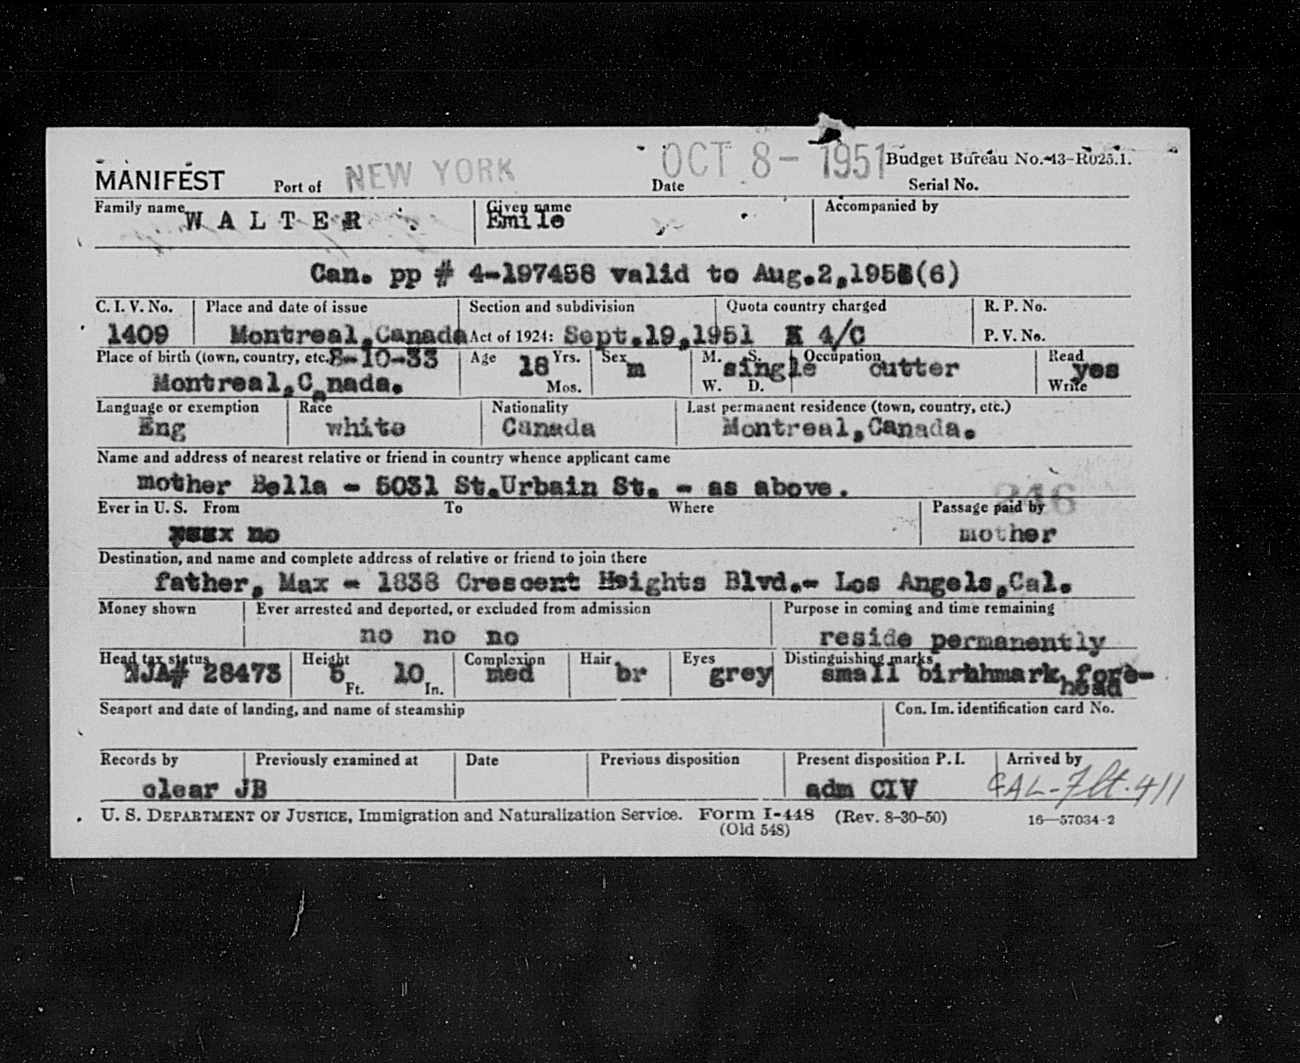 MANIFEST Port of NEW YORK Date OCT 8- 1951 Budget Bureau No. 43-R025.1.
Serial No.
Family name WALTER Given name Emile Accompanied by
Can. pp # 4-197458 valid to Aug.2,1956(6)
C. I. V. No. Place and date of issue Section and subdivision Quota country charged R. P. No.
1409 Montreal,Canada Act of 1924: Sept.19,1951 4/C P. V. No.
Place of birth (town, country, etc.) 8-10-33 Age 18 Yrs. Sex M. S. Occupation Read
Montreal,Canada. Mos. m W. D. single cutter Write yes
Language or exemption Race Nationality Last permanent residence (town, country, etc.)
Eng white Canada Montreal,Canada.
Name and address of nearest relative or friend in country whence applicant came
mother Bella - 5031 St.Urbain St. - as above.
246
Ever in U. S. From To Where Passage paid by
no mother
Destination, and name and complete address of relative or friend to join there
father, Max - 1838 Crescent Heights Blvd.- Los Angels,Cal.
Money shown Ever arrested and deported, or excluded from admission Purpose in coming and time remaining
no no no reside permanently
Head tax status Height Complexion Hair Eyes Distinguishing marks
NJA# 28473 5 Ft. 10 In. med br grey small birhhmark, fore-
head
Seaport and date of landing, and name of steamship Con. Im. identification card No.
Records by Previously examined at Date Previous disposition Present disposition P. I. Arrived by
clear JB adm CIV CAL-Flt. 411
U. S. DEPARTMENT OF JUSTICE, Immigration and Naturalization Service. Form I-448 (Rev. 8-30-50) 16—57034-2
(Old 548)